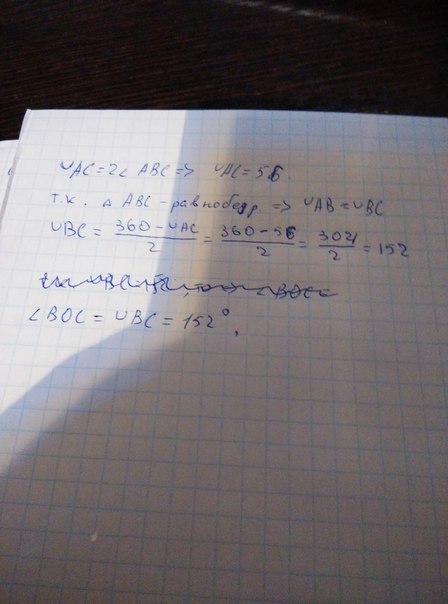 ∪AC=2∠ABC=> ∪AC=56.
т.к. △ABC-равнобедр. => ∪AB=∪BC
∪BC= (360-∪AC)/2 = (360-56)/2 = 304/2 = 152
∠BOC=∪BC=152°,